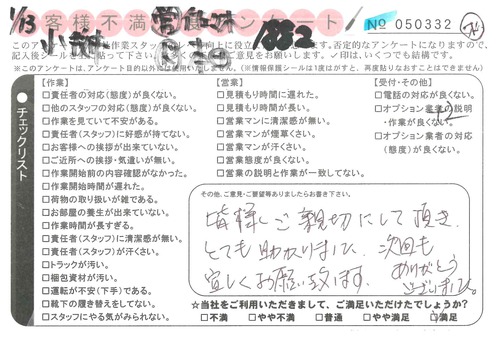 1/13
客様不満 アンケート
No 050332
1882
記入後シールを貼って下さい。
否定的なアンケートになりますので、
✓印は、いくつでも結構です。
(※このアンケートは、アンケート目的以外
(※情報保護シールは1度はがすと、再度貼りなおすことはできません)
チェックリスト
【作業】
□責任者の対応(態度)が良くない。
□他のスタッフの対応(態度)が良くない。
□作業を見ていて不安がある。
□責任者(スタッフ)に好感が持てない。
□お客様への挨拶が出来ていない。
□ご近所への挨拶・気遣いが無い。
□作業開始前の内容確認がなかった。
□作業開始時間が遅れた。
□荷物の取り扱いが雑である。
□お部屋の養生が出来ていない。
□作業時間が長すぎる。
□責任者(スタッフ)に清潔感が無い。
□責任者(スタッフ)が汗くさい。
□トラックが汚い。
□梱包資材が汚い。
□運転が不安(下手)である。
□靴下の履き替えをしてない。
□スタッフにやる気がみられない。
【営業】
□見積もり時間に遅れた。
□見積もり時間が長い。
□営業マンに清潔感が無い。
□営業マンが煙草くさい。
□営業マンが汗くさい。
□営業態度が良くない。
□営業の説明と作業が一致してない。
【受付・その他】
□電話の対応が良くない。
□オプション業者の説明
・作業が良くない。
□オプション業者の対応
(態度)が良くない。
その他、ご意見・ご要望等ありましたらお書き下さい。
皆様、ご親切にして頂き
とても助かりました。次回も
宜しくお願い致します。ありがとう
ございました。
☆当社をご利用いただきまして、ご満足いただけたでしょうか?
□不満 □やや不満 □普通 □やや満足 □満足